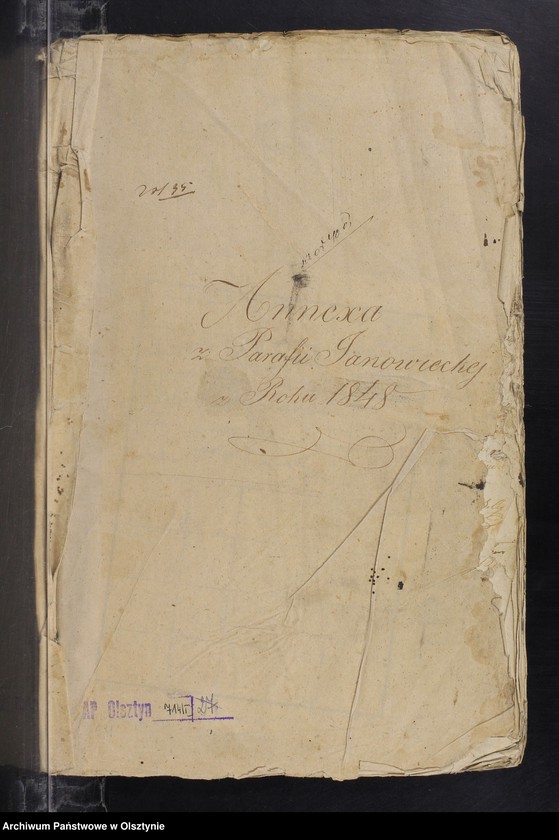 Annexa
z Parafii Janowieckej
z Roku 1848
AP Olsztyn
Archiwum Państwowe w Olsztynie